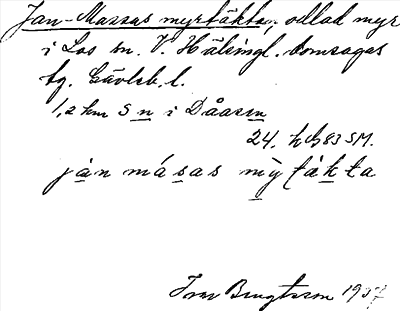 Jan-Massas myrtäkta, odlad myr
i Los sn. V. Hälsingl. domsagas
tg. Gävleb. l.
1,2 km S n i Dåasen
24. h 83 SM.
ján másas mỳtákta
Ivar Bengtsson 1937